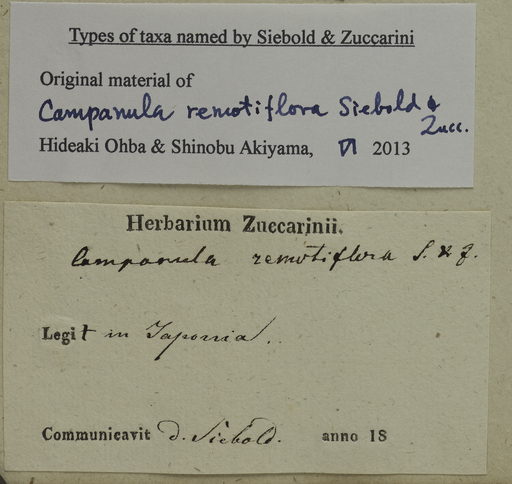 Types of taxa named by Siebold & Zuccarini
Original material of
Campanula remotiflora Siebold &
Zucc.
Hideaki Ohba & Shinobu Akiyama, VI 2013
Herbarium Zuccarinii.
Campanula remotiflora S. & Z.
Legit in Japonia.
Communicavit d. Siebold. anno 18